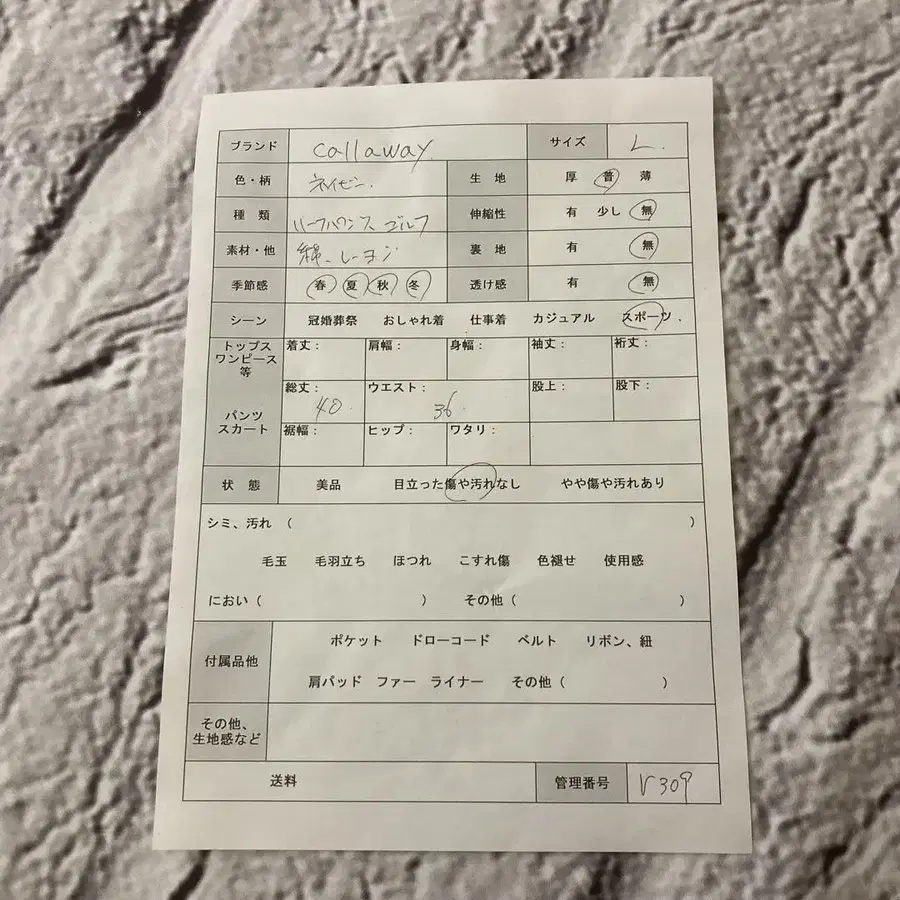 ブランド callaway サイズ L.
色・柄 ネイビー. 生地 厚 普 薄
種類 ハーフパンツ ゴルフ 伸縮性 有 少し 無
素材・他 綿、レーヨン 裏地 有 無
季節感 春 夏 秋 冬 透け感 有 無
シーン 冠婚葬祭 おしゃれ着 仕事着 カジュアル スポーツ.
トップス ワンピース等 着丈: 肩幅: 身幅: 袖丈: 裄丈:
パンツ スカート 総丈: 40. ウエスト: 36. 股上: 股下:
裾幅: ヒップ: ワタリ:
状態 美品 目立った傷や汚れなし やや傷や汚れあり
シミ、汚れ ( )
毛玉 毛羽立ち ほつれ こすれ傷 色褪せ 使用感
におい ( ) その他 ( )
付属品他 ポケット ドローコード ベルト リボン、紐
肩パッド ファー ライナー その他 ( )
その他、
生地感など
送料 管理番号 V309